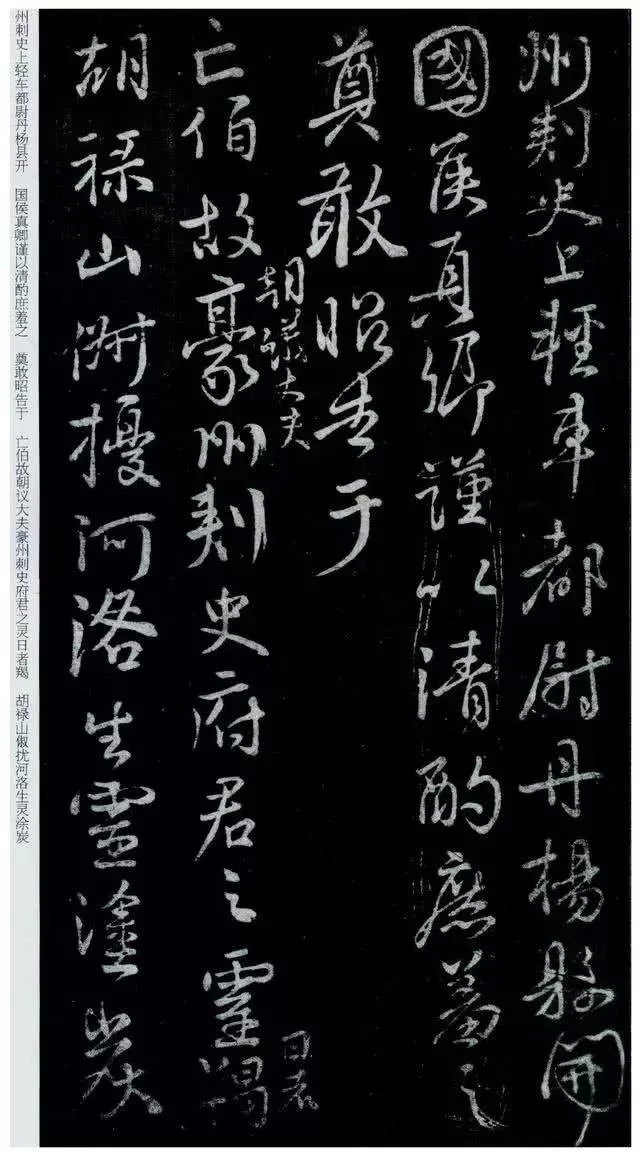 州刺史上輕車都尉丹楊縣開
國侯真卿謹以清酌庶羞之
奠敢昭告于
亡伯故豪州刺史府君之靈
朝議大夫
日者
羯
胡祿山俶擾河洛生靈塗炭
州刺史上轻车都尉丹杨县开 国侯真卿谨以清酌庶羞之 奠敢昭告于 亡伯故朝议大夫豪州刺史府君之灵日者羯 胡禄山俶扰河洛生灵涂炭